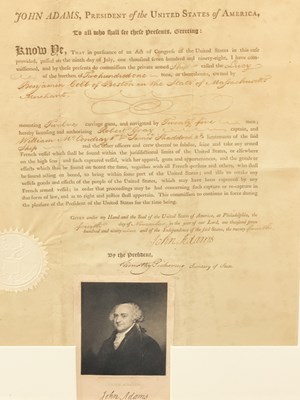 JOHN ADAMS, PRESIDENT OF THE UNITED STATES OF AMERICA,
To all who shall see these Presents, Greeting:
KNOW YE, THAT in pursuance of an Act of Congress of the United States in this case
provided, passed on the ninth day of July, one thousand seven hundred and ninety-eight, I have com-
missioned, and by these presents do commission the private armed Ship called the
of the burthen of Two hundred one tons, or thereabouts, owned by
Benjamin of Boston in the State of Massachusetts
Merchant
mounting Twelve carriage guns, and navigated by Twenty five men,
hereby licensing and authorizing Robert Gray captain, and
William lieutenants of the said
Ship and the other officers and crew thereof to subdue, seize and take any armed
French vessel which shall be found within the jurisdictional limits of the United States, or elsewhere
on the high seas; and such captured vessel, with her apparel, guns and appurtenances, and the goods or
effects which shall be found on board the same, together with all French persons and others, who shall
be found acting on board, to bring within some port of the United States; and also to retake any
vessels, goods and effects of the people of the United States, which may have been captured by any
French armed vessel; in order that proceedings may be had concerning such capture or re-capture in
due form of law, and as to right and justice shall appertain. This commission to continue in force during
the pleasure of the President of the United States for the time being.
GIVEN under my Hand and the Seal of the United States of America, at Philadelphia, the
day of in the year of our Lord, one thousand seven
hundred and ninety- and of the Independence of the said States, the twenty
John Adams
By the President,
Timothy Pickering Secretary of State.
John Adams